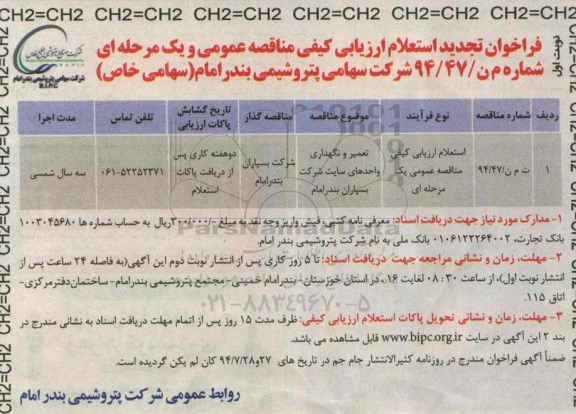 CH2=CH2 CH2=CH2 CH2=CH2 CH2=CH2 CH2=CH2 CH2=CH2
نوبت اول
فراخوان تجدید استعلام ارزیابی کیفی مناقصه عمومی و یک مرحله ای
شماره م ن/۹۴/۴۷ شرکت سهامی پتروشیمی بندر امام(سهامی خاص)
شرکت سهامی پتروشیمی بندر امام
B.I.P.C
ردیف شماره مناقصه نوع فرآیند موضوع مناقصه مناقصه گذار تاریخ گشایش پاکات ارزیابی تلفن تماس مدت اجرا
۱ ت م ن/۹۴/۴۷ استعلام ارزیابی کیفی مناقصه عمومی یک مرحله ای تعمیر و نگهداری واحدهای سایت شرکت بسپاران بندرامام شرکت بسپاران بندرامام دوهفته کاری پس از دریافت پاکات استعلام ۰۶۱-۵۲۲۵۲۳۷۱ سه سال شمسی
۱- مدارک مورد نیاز جهت دریافت اسناد: معرفی نامه کتبی، فیش واریز وجه نقد به مبلغ -/۳۰۰/۰۰۰ریال به حساب شماره ها ۱۰۰۳۰۴۵۶۸۰
بانک تجارت، ۰۱۰۶۱۲۲۲۶۴۰۰۲ بانک ملی به نام شرکت پتروشیمی بندر امام.
۲- مهلت، زمان و نشانی مراجعه جهت دریافت اسناد: تا ۵ روز کاری پس از انتشار نوبت دوم این آگهی(به فاصله ۲۴ ساعت پس از
انتشار نوبت اول)، از ساعت ۰۸:۳۰ لغایت ۱۶، در استان خوزستان- بندرامام خمینی- مجتمع پتروشیمی بندرامام- ساختمان‌دفترمرکزی-
اتاق ۱۱۵.
۳- مهلت، زمان و نشانی تحویل پاکات استعلام ارزیابی کیفی: ظرف مدت ۱۵ روز پس از اتمام مهلت دریافت اسناد به نشانی مندرج در
بند ۲ این آگهی در سایت www.bipc.org.ir قابل مشاهده می باشد.
ضمناً آگهی فراخوان مندرج در روزنامه کثیرالانتشار جام جم در تاریخ های ۲۷و۹۴/۷/۲۸ کان لم یکن گردیده است.
روابط عمومی شرکت پتروشیمی بندر امام
ParsNamadData
۰۲۱-۸۸۳۴۹۶۷۰-۵